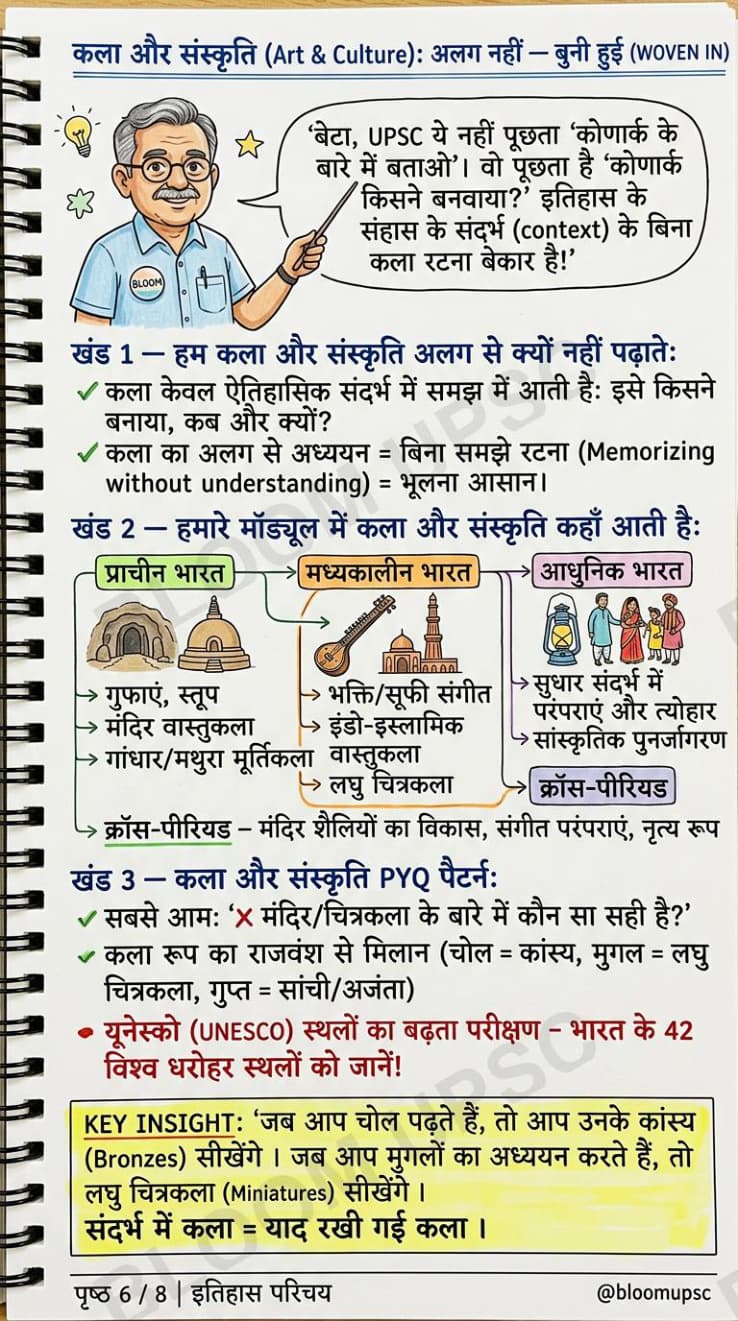 कला और संस्कृति (Art & Culture): अलग नहीं — बुनी हुई (WOVEN IN)
'बेटा, UPSC ये नहीं पूछता 'कोणार्क के
बारे में बताओ'। वो पूछता है 'कोणार्क
किसने बनवाया?' इतिहास के
संहास के संदर्भ (context) के बिना
कला रटना बेकार है!'
BLOOM
खंड 1 — हम कला और संस्कृति अलग से क्यों नहीं पढ़ाते:
✓ कला केवल ऐतिहासिक संदर्भ में समझ में आती है: इसे किसने
बनाया, कब और क्यों?
✓ कला का अलग से अध्ययन = बिना समझे रटना (Memorizing
without understanding) = भूलना आसान।
खंड 2 — हमारे मॉड्यूल में कला और संस्कृति कहाँ आती है:
प्राचीन भारत
मध्यकालीन भारत
आधुनिक भारत
गुफाएं, स्तूप
मंदिर वास्तुकला
गांधार/मथुरा मूर्तिकला
भक्ति/सूफी संगीत
इंडो-इस्लामिक
वास्तुकला
लघु चित्रकला
सुधार संदर्भ में
परंपराएं और त्योहार
सांस्कृतिक पुनर्जागरण
क्रॉस-पीरियड
क्रॉस-पीरियड – मंदिर शैलियों का विकास, संगीत परंपराएं, नृत्य रूप
खंड 3 — कला और संस्कृति PYQ पैटर्न:
✓ सबसे आम: '✗ मंदिर/चित्रकला के बारे में कौन सा सही है?'
✓ कला रूप का राजवंश से मिलान (चोल = कांस्य, मुगल = लघु
चित्रकला, गुप्त = सांची/अजंता)
• यूनेस्को (UNESCO) स्थलों का बढ़ता परीक्षण – भारत के 42
विश्व धरोहर स्थलों को जानें!
KEY INSIGHT: 'जब आप चोल पढ़ते हैं, तो आप उनके कांस्य
(Bronzes) सीखेंगे । जब आप मुगलों का अध्ययन करते हैं, तो
लघु चित्रकला (Miniatures) सीखेंगे ।
संदर्भ में कला = याद रखी गई कला ।
पृष्ठ 6 / 8 | इतिहास परिचय
@bloomupsc
BLOOM UPSC
BLOOM UPSC